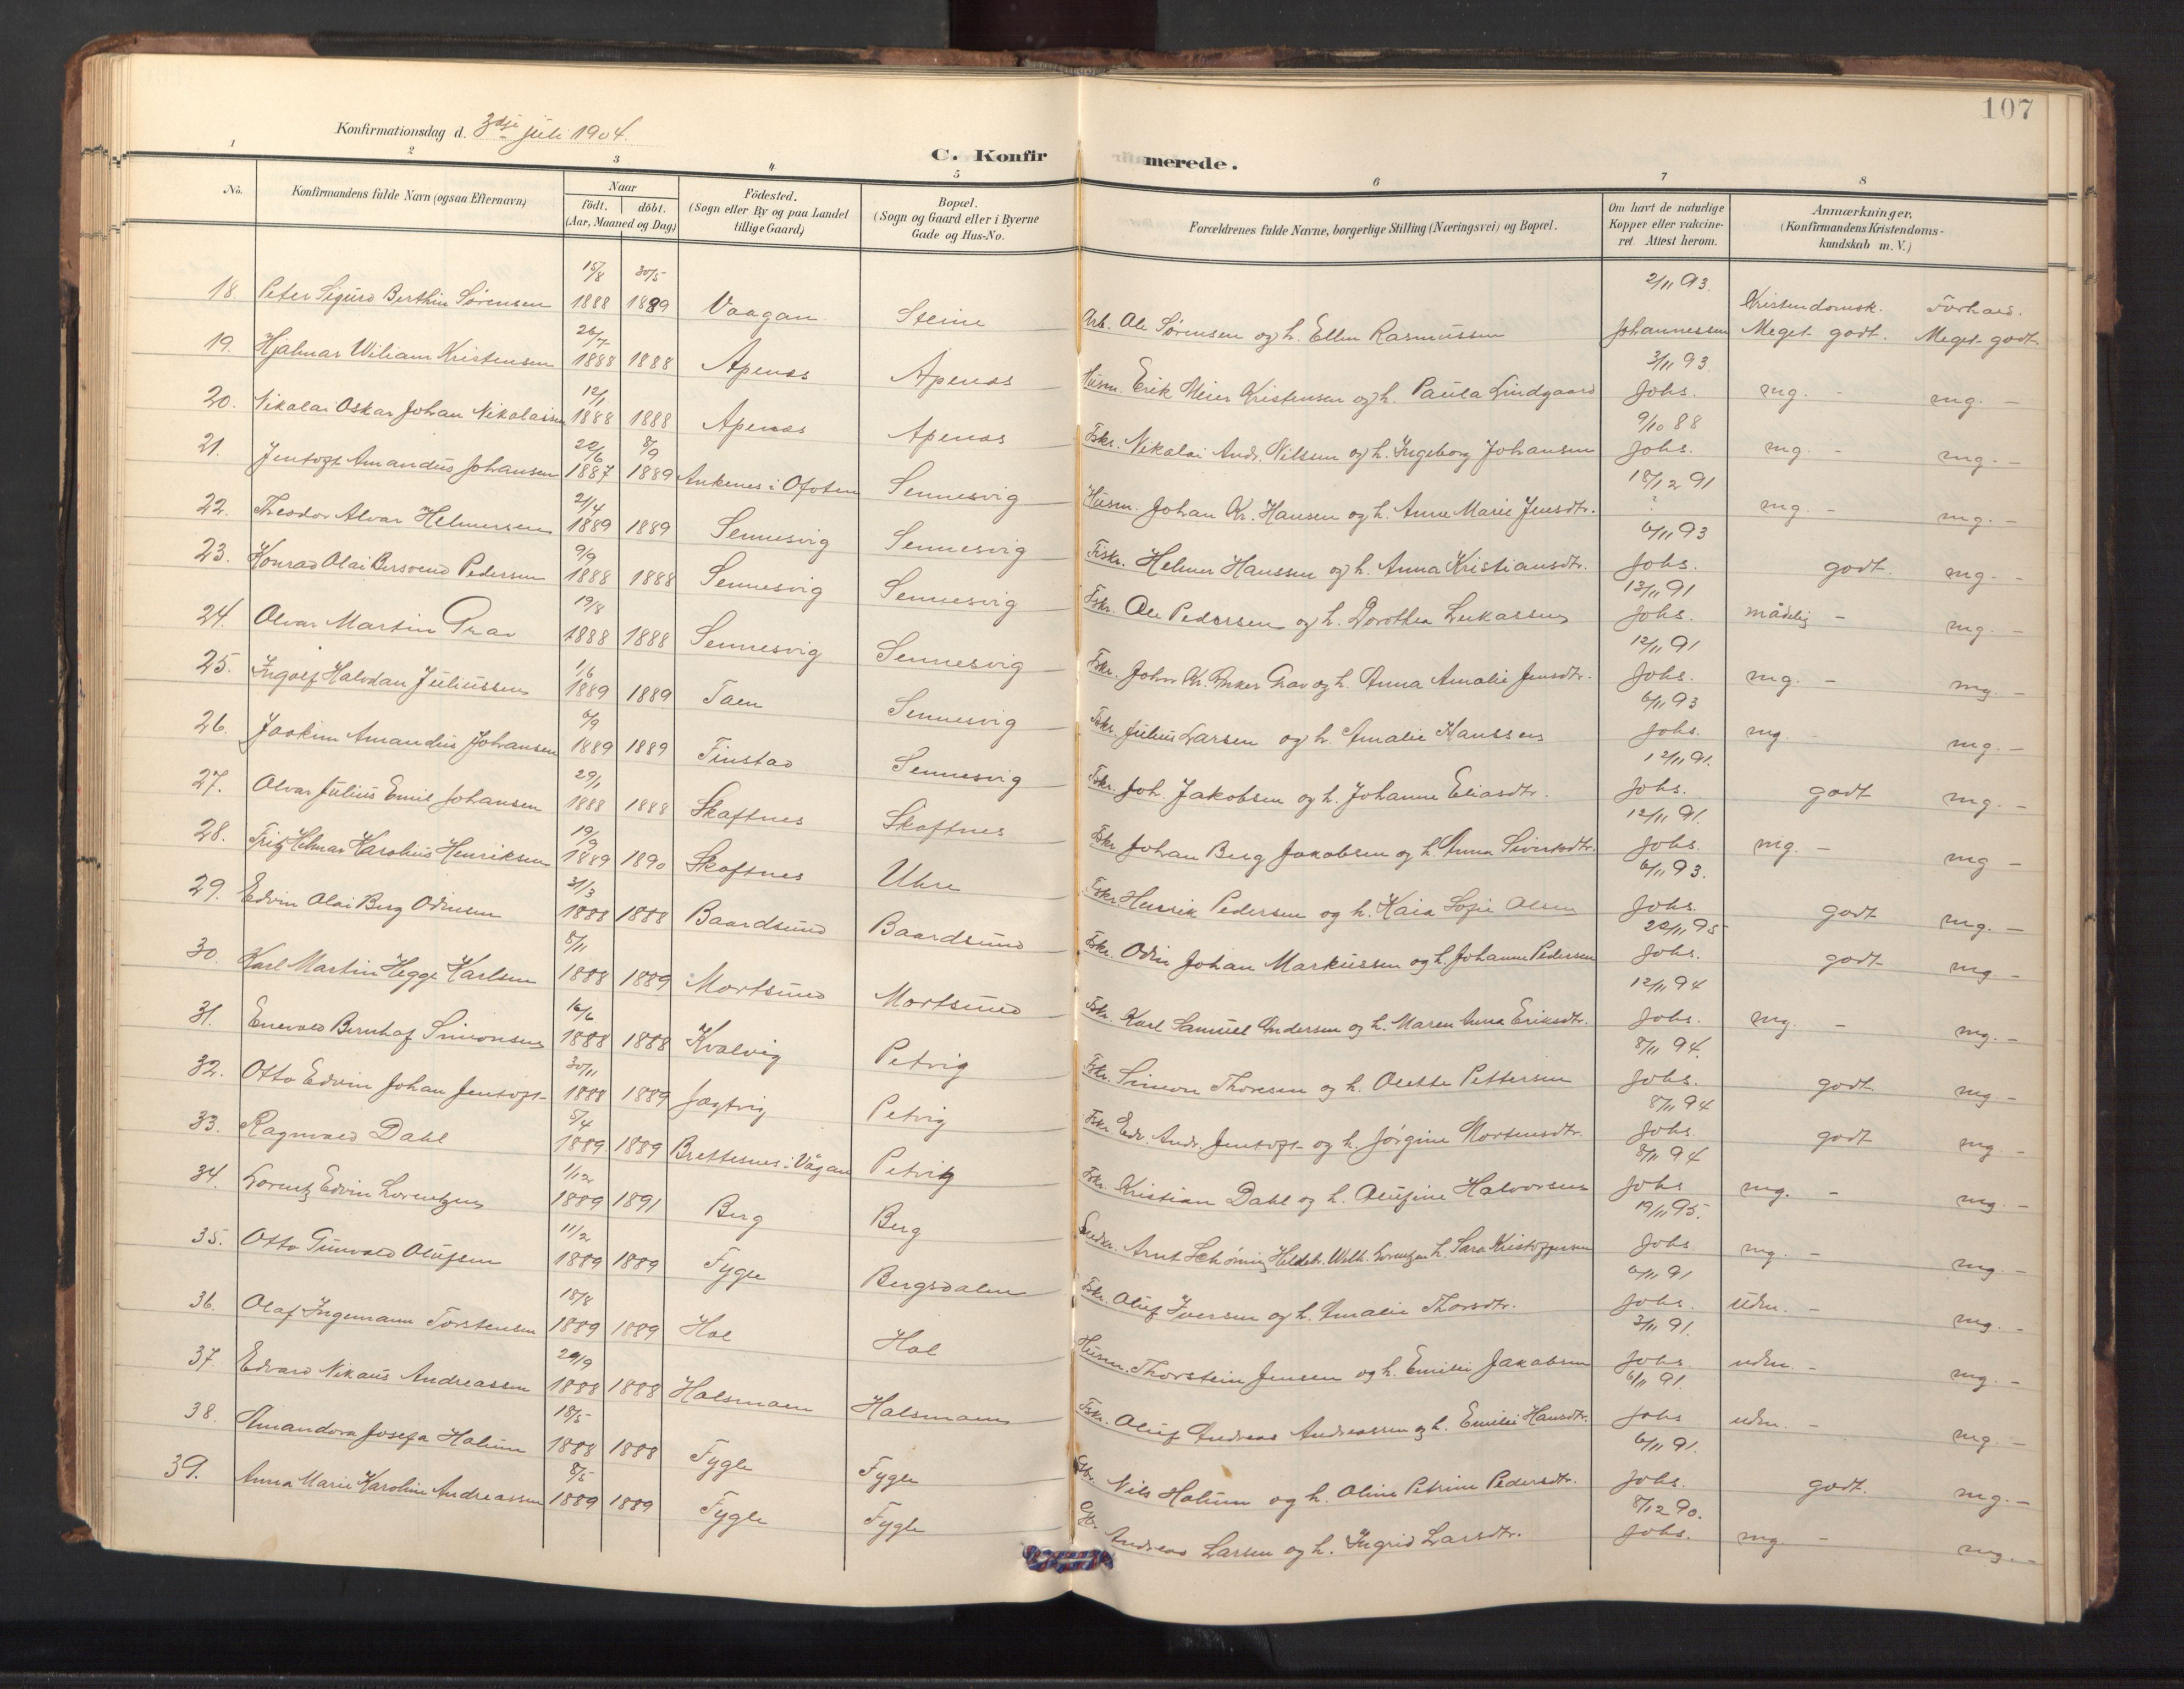 107
Konfirmationsdag d. 3dje juli 1904.
C. Konfirmerede.
1 2 3 4 5 6 7 8
No. Konfirmandens fulde Navn (ogsaa Efternavn) Naar født. døbt. (Aar, Maaned og Dag) Fødested. (Sogn eller By og paa Landet tillige Gaard) Bopæl. (Sogn og Gaard eller i Byerne Gade og Hus-No. Forældrenes fulde Navne, borgerlige Stilling (Næringsvei) og Bopæl. Om havt de naturlige Kopper eller vakcineret. Attest herom. Anmærkninger. (Konfirmandens Kristendomskundskab m. V.)
Kristendomsk. Forhold.
18. Peter Sigurd Berthin Sørensen 15/8 1888 30/5 1889 Vaagan Steine Arb. Ole Sørensen og h. Ellen Rasmussen 2/11 93. Johannessen Meget godt. Meget godt
19. Hjalmar Wiliam Kristensen 26/7 1888 1888 Apenæs Apenæs Husm. Erik Meier Kristensen og h. Paula Lindgaard 3/11 93. Johs. mg. - mg. -
20. Nikolai Oskar Johan Nikolaisen 12/1 1888 1888 Apenæs Apenæs Fskr. Nikolai Andr. Nilsen og h. Ingeborg Johansen 9/10 88 Johs. mg. - mg. -
21. Jentoft Amandus Johansen 22/6 1887 8/9 1889 Ankenes i Ofoten Sennesvig Husm. Johan Kr. Hansen og h. Anne Marie Jensdtr. 18/12 91 ? mg. - mg. -
22. Theodor Alvar Helmersen 2/4 1889 1889 Sennesvig Sennesvig Fiskr. Helmer Hanssen og h. Anna Kristiansdtr. 6/11 93 Johs. godt. mg. -
23. Konrad Olai Bersvend Pedersen 9/9 1888 1888 Sennesvig Sennesvig Fskr. Ole Pedersen og h. Dorothea Lukassen 13/11 91 Johs. mådelig - mg. -
24. Olvar Martin Grav 19/8 1888 1888 Sennesvig Sennesvig Fskr. John Kr. Anker Grav og h. Anna Amalie Jensdtr. 12/11 91 Johs. mg. - mg. -
25. Ingolf Halvdan Juliussen 1/6 1889 1889 Taen Sennesvig Fskr. Julius Larsen og h. Amalie Hanssen 6/11 93 Johs. mg. mg. -
26. Joakim Amandus Johansen 6/9 1889 1889 Finstad Sennesvig Fskr. Joh. Jakobsen og h. Johanne Eliasdtr. 12/11 91. Johs. godt mg. -
27. Olvar Julius Emil Johansen 29/1 1888 1888 Skaftnes Skaftnes Fskr. Johan Berg Jakobsen og h. Anna Sivertsdtr. 12/11 91. Johs. mg. - mg -
28. Fritz Helmar Karolius Henriksen 19/9 1889 1890 Skaftnes Uhre Fskr. Henrik Pedersen og h. Kaia Sofie Olsen 6/11 93. Johs. godt mg. -
29. Edvin Olai Berg Odinsen 31/3 1888 1888 Baardsund Baardsund Fskr. Odin Johan Markussen og h. Johanne Pedersen 22/11 95 Johs. godt mg. -
30. Karl Martin Hegge Karlsen 8/11 1888 1889 Mortsund Mortsund Fskr. Karl Samuel Andersen og h. Maren Anna Eriksdtr. 12/11 94 Johs. mg. - mg. -
31. Enevald Bernhof Simonsen 16/6 1888 1888 Kvalvig Petvig Fskr. Simon Thoresen og h. Olette Pettersen 8/11 94. Johs. godt mg. -
32. Otto Edvin Johan Jentoft 30/11 1888 1889 Jagtvig Petvig Fskr. Edv. Andr. Jentoft og h. Jørgine Mortensdtr. 8/11 94 Johs. godt mg. -
33. Ragnvald Dahl 5/4 1889 1889 Brettesnes i Vågan Petvig Fskr. Kristian Dahl og h. Olufine Halvorsen 8/11 94 Johs mg. - mg. -
34. Lorentz Edvin Lorentzen 1/12 1889 1891 Berg Berg Arnt Schøning Hildebr. Wilh. Lorentzen h. Sara Kristoffersen 19/11 95. Johs. mg. - mg. -
35. Otto Gunvald Olufsen 11/2 1889 1889 Fygle Bergsdalen Fskr. Oluf Iversen og h. Amalie Thorsdtr. 6/11 91 Johs. udm. - mg. -
36. Olaf Ingemann Torstensen 18/8 1889 1889 Hol Hol Husm. Thorstein Jensen og h. Emilie Jakobsen 3/11 91. Johs. udm. - mg. -
37. Edvard Nikaus Andreassen 29/9 1888 1888 Holsmoen Holsmoen Fskr. Oluf Andreas Andreassen og h. Emilie Hansdtr. 6/11 91. Johs udm. - mg. -
38. Amandora Josefa Holum 18/5 1888 1888 Fygle Fygle Nils Holum og h. Oline Petrine Pedersdtr. 6/11 91. Johs. godt. mg. -
39. Anna Marie Karoline Andreassen 8/5 1889 1889 Fygle Fygle Andreas Larsen og h. Ingrid Larsdtr. 8/12 90. Johs. mg. - mg. -